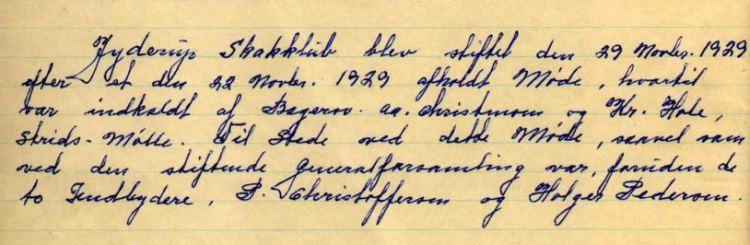 Jyderup Skakklub blev stiftet den 29 Novbr. 1929
efter et den 22 Novbr. 1929 afholdt Møde, hvortil
var indkaldt af Bagerm. aa. Christensen og Kr. Hole,
Strids-Mølle. Til Stede ved dette Møde, saavel som
ved den stiftende Generalforsamling var, foruden de
to Indbydere, P. Christoffersen og Holger Pedersen.